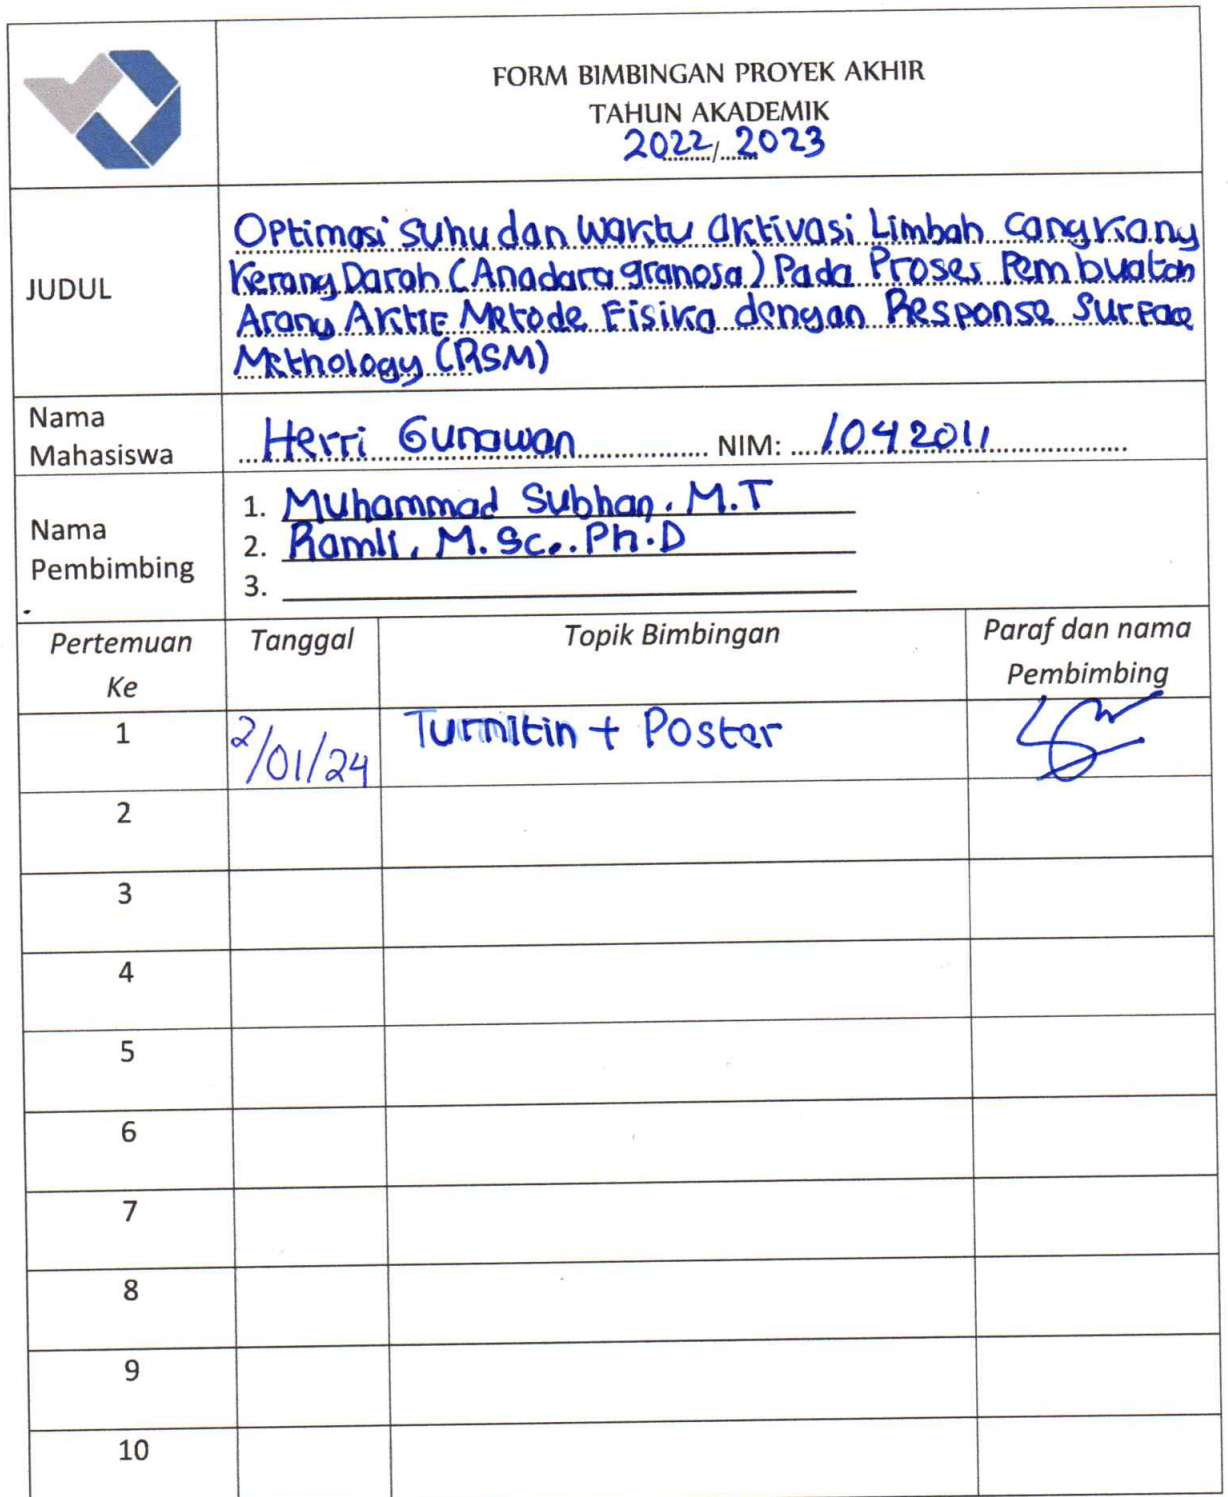 FORM BIMBINGAN PROYEK AKHIR
TAHUN AKADEMIK
2022/2023
JUDUL
Optimasi suhu dan waktu aktivasi Limbah cangkang
Kerang Darah (Anadara granosa) Pada Proses Pembuatan
Arang Aktif Metode Fisika dengan Response Surface
Methology (RSM)
Nama
Mahasiswa
Herri Gunawan NIM: 1042011
Nama
Pembimbing
1. Muhammad Subhan, M.T
2. Ramli, M.Sc., Ph.D
3.
Pertemuan
Ke
Tanggal
Topik Bimbingan
Paraf dan nama
Pembimbing
1 2/01/24 Turnitin + Poster
2
3
4
5
6
7
8
9
10